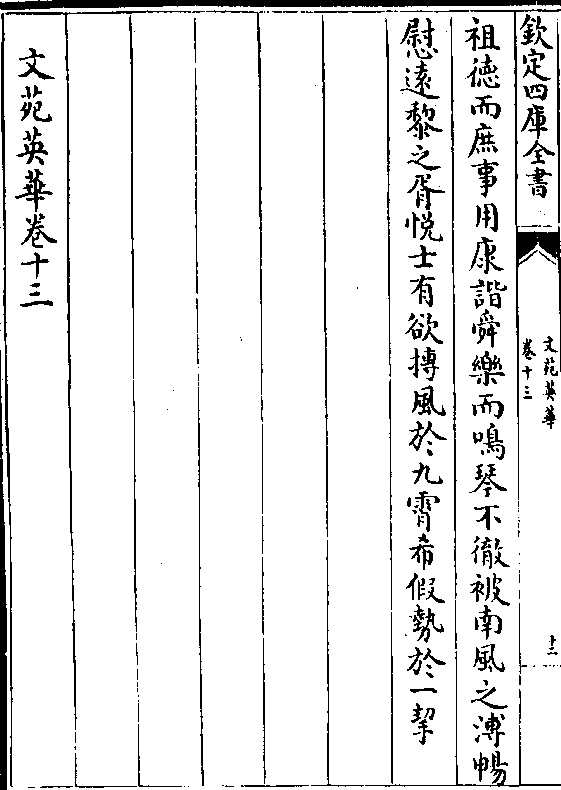 欽定四庫全書
文苑英華
卷十三
十三
祖德而庶事用康諧舜樂而鳴琴不徹被南風之溥暢
慰遠黎之胥悅士有欲摶風於九霄希假勢於一挈
文苑英華卷十三